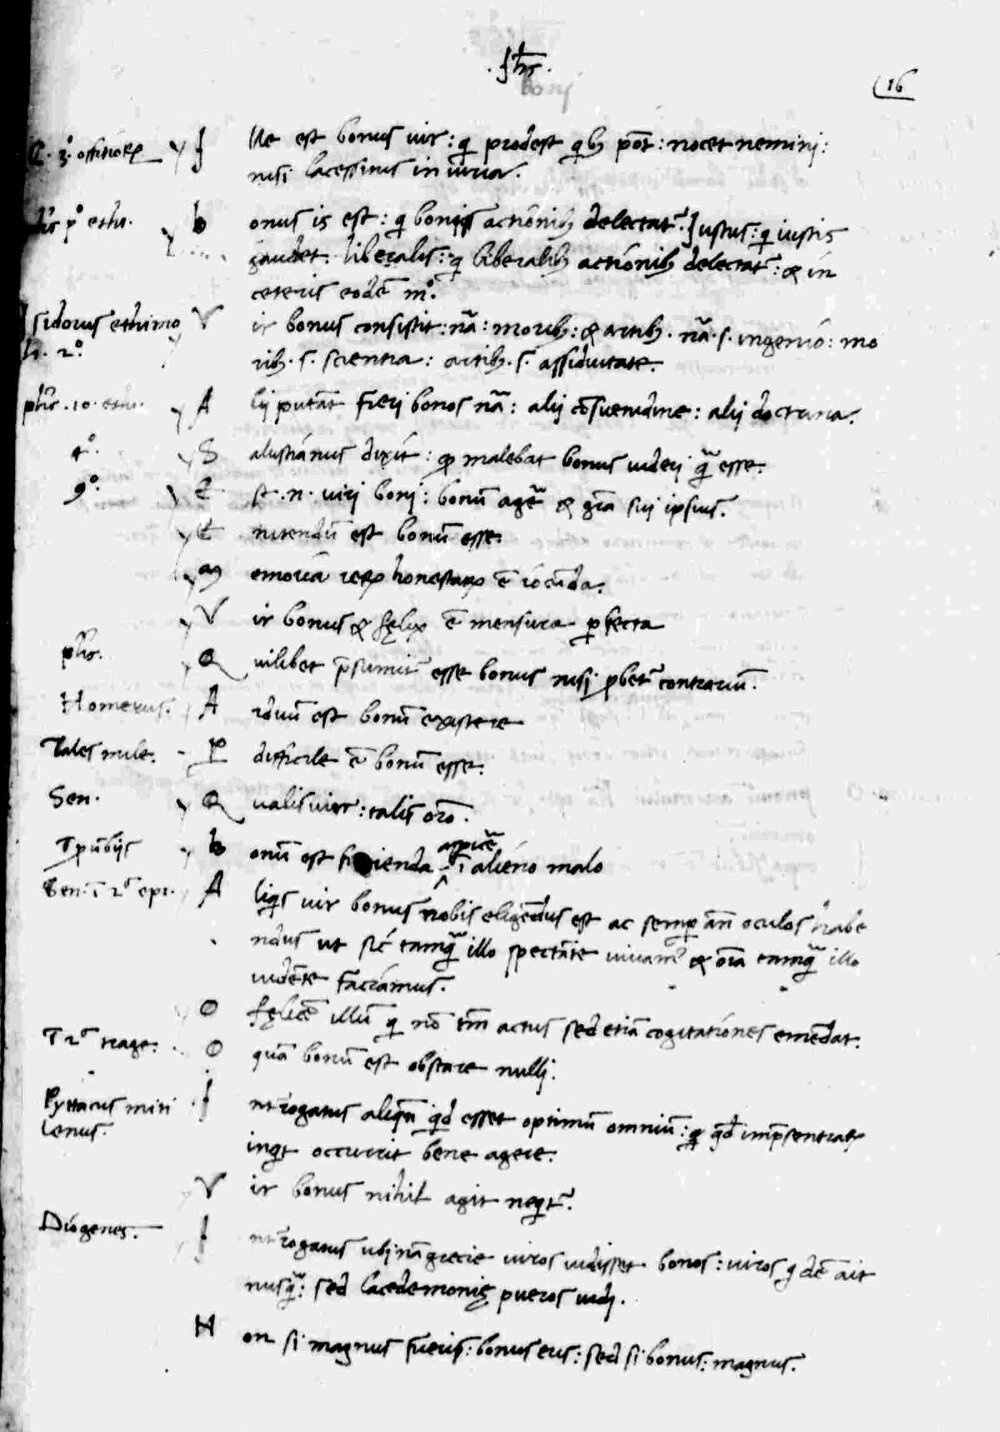 .Jhs.
boni
16
C. 3º. offitiorꝝ I lle est bonus uir: qͥ prodest qͥbꝫ pōt: nocet nemini:
nisi lacessitus iniuria.
phs pº ethi. b onus is est: qͥ bonis actionibꝫ delectat᷑. Justus: qͥ iustis
gaudet. liberalis: qͥ liberalibꝫ actionibꝫ delectat᷑: & in
ceteris eodē mº.
Isidorus ethimo V ir bonus consistit: nā: moribꝫ: & artibꝫ. nā. s. ingenio: mo
li. 2º. ribꝫ. s. scientia: artibꝫ. s. assiduitate.
phs. 10. ethi. A lii putāt fieri bonos nā: alij cōsuetudine: alij doctrina.
4º. S alustianus dixit: qꝫ malebat bonus uideri qͣ esse.
9º. E st. n. uiri boni: bonū agē & grā sui ipsius.
E nitendū est bonū esse.
M emoria rerꝝ honestarꝝ ē iocūda.
V ir bonus & fęlix ē mensura ꝑfecta
phs. Q uilibet p̄sumit᷑ esse bonus nisi ꝓbet᷑ contrariū.
Homerus. A rduū est bonū existere
Tales mile. P difficile ē bonū esse.
Sen. Q ualis uir: talis orō.
b onū est fugienda aspicē ī alieno malo
Sen. ī 2º epi. A liqͥs uir bonus nobis eligēdus est ac semꝑ añ oculos habe
ndus ut sic tamqͣ illo spectāte uiuam᷒ & oīa tamqͣ illo
uidēte faciamus.
O fęlicē illū qͥ nō tm̄ actus sed etiā cogitationes emēdat.
T 2º trage. O quā bonū est obstare nulli.
Pyttacus miti I nt᷑rogatus aliqn̄ qͥd esset optimū omniū:
lenus. inqͥt occurrit bene agere.
V ir bonus nihil agit neqͥt᷑.
Diogenes. I nt᷑rogatus ubinā grecie uiros uidisset bonos: uiros qͥdē ait
nusqͣ: sed lacedemonię pueros uidi.
N on si magnus fueris: bonus eris: sed si bonus: magnus.